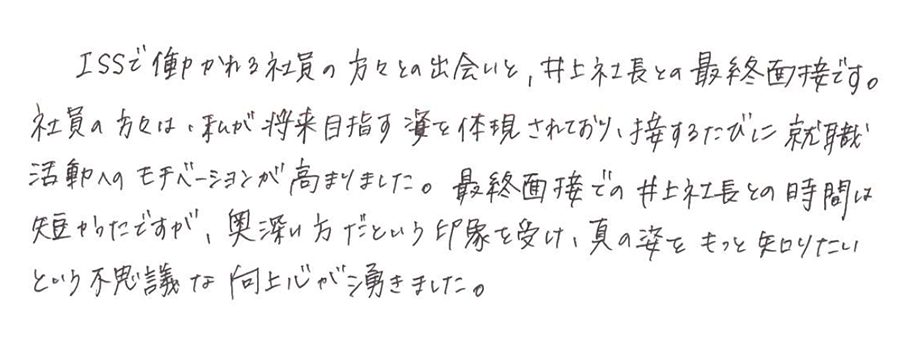 ISSで働かれる社員の方々との出会いと、井上社長との最終面接です。
社員の方々は、私が将来目指す姿を体現されており、接するたびに就職
活動へのモチベーションが高まりました。最終面接での井上社長との時間は
短かったですが、奥深い方だという印象を受け、真の姿をもっと知りたい
という不思議な向上心が湧きました。